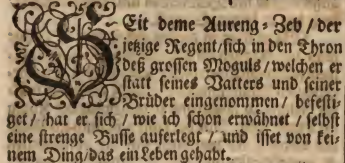 SEit deme Aureng-Zeb / der
jetzige Regent / sich in den Thron
deß grossen Moguls / welchen er
statt seines Vatters und seiner
Brüder eingenommen / befesti-
get / hat er sich / wie ich schon erwähnet / selbst
eine strenge Busse auferlegt / und isset von kei-
nem Ding / das ein Leben gehabt.